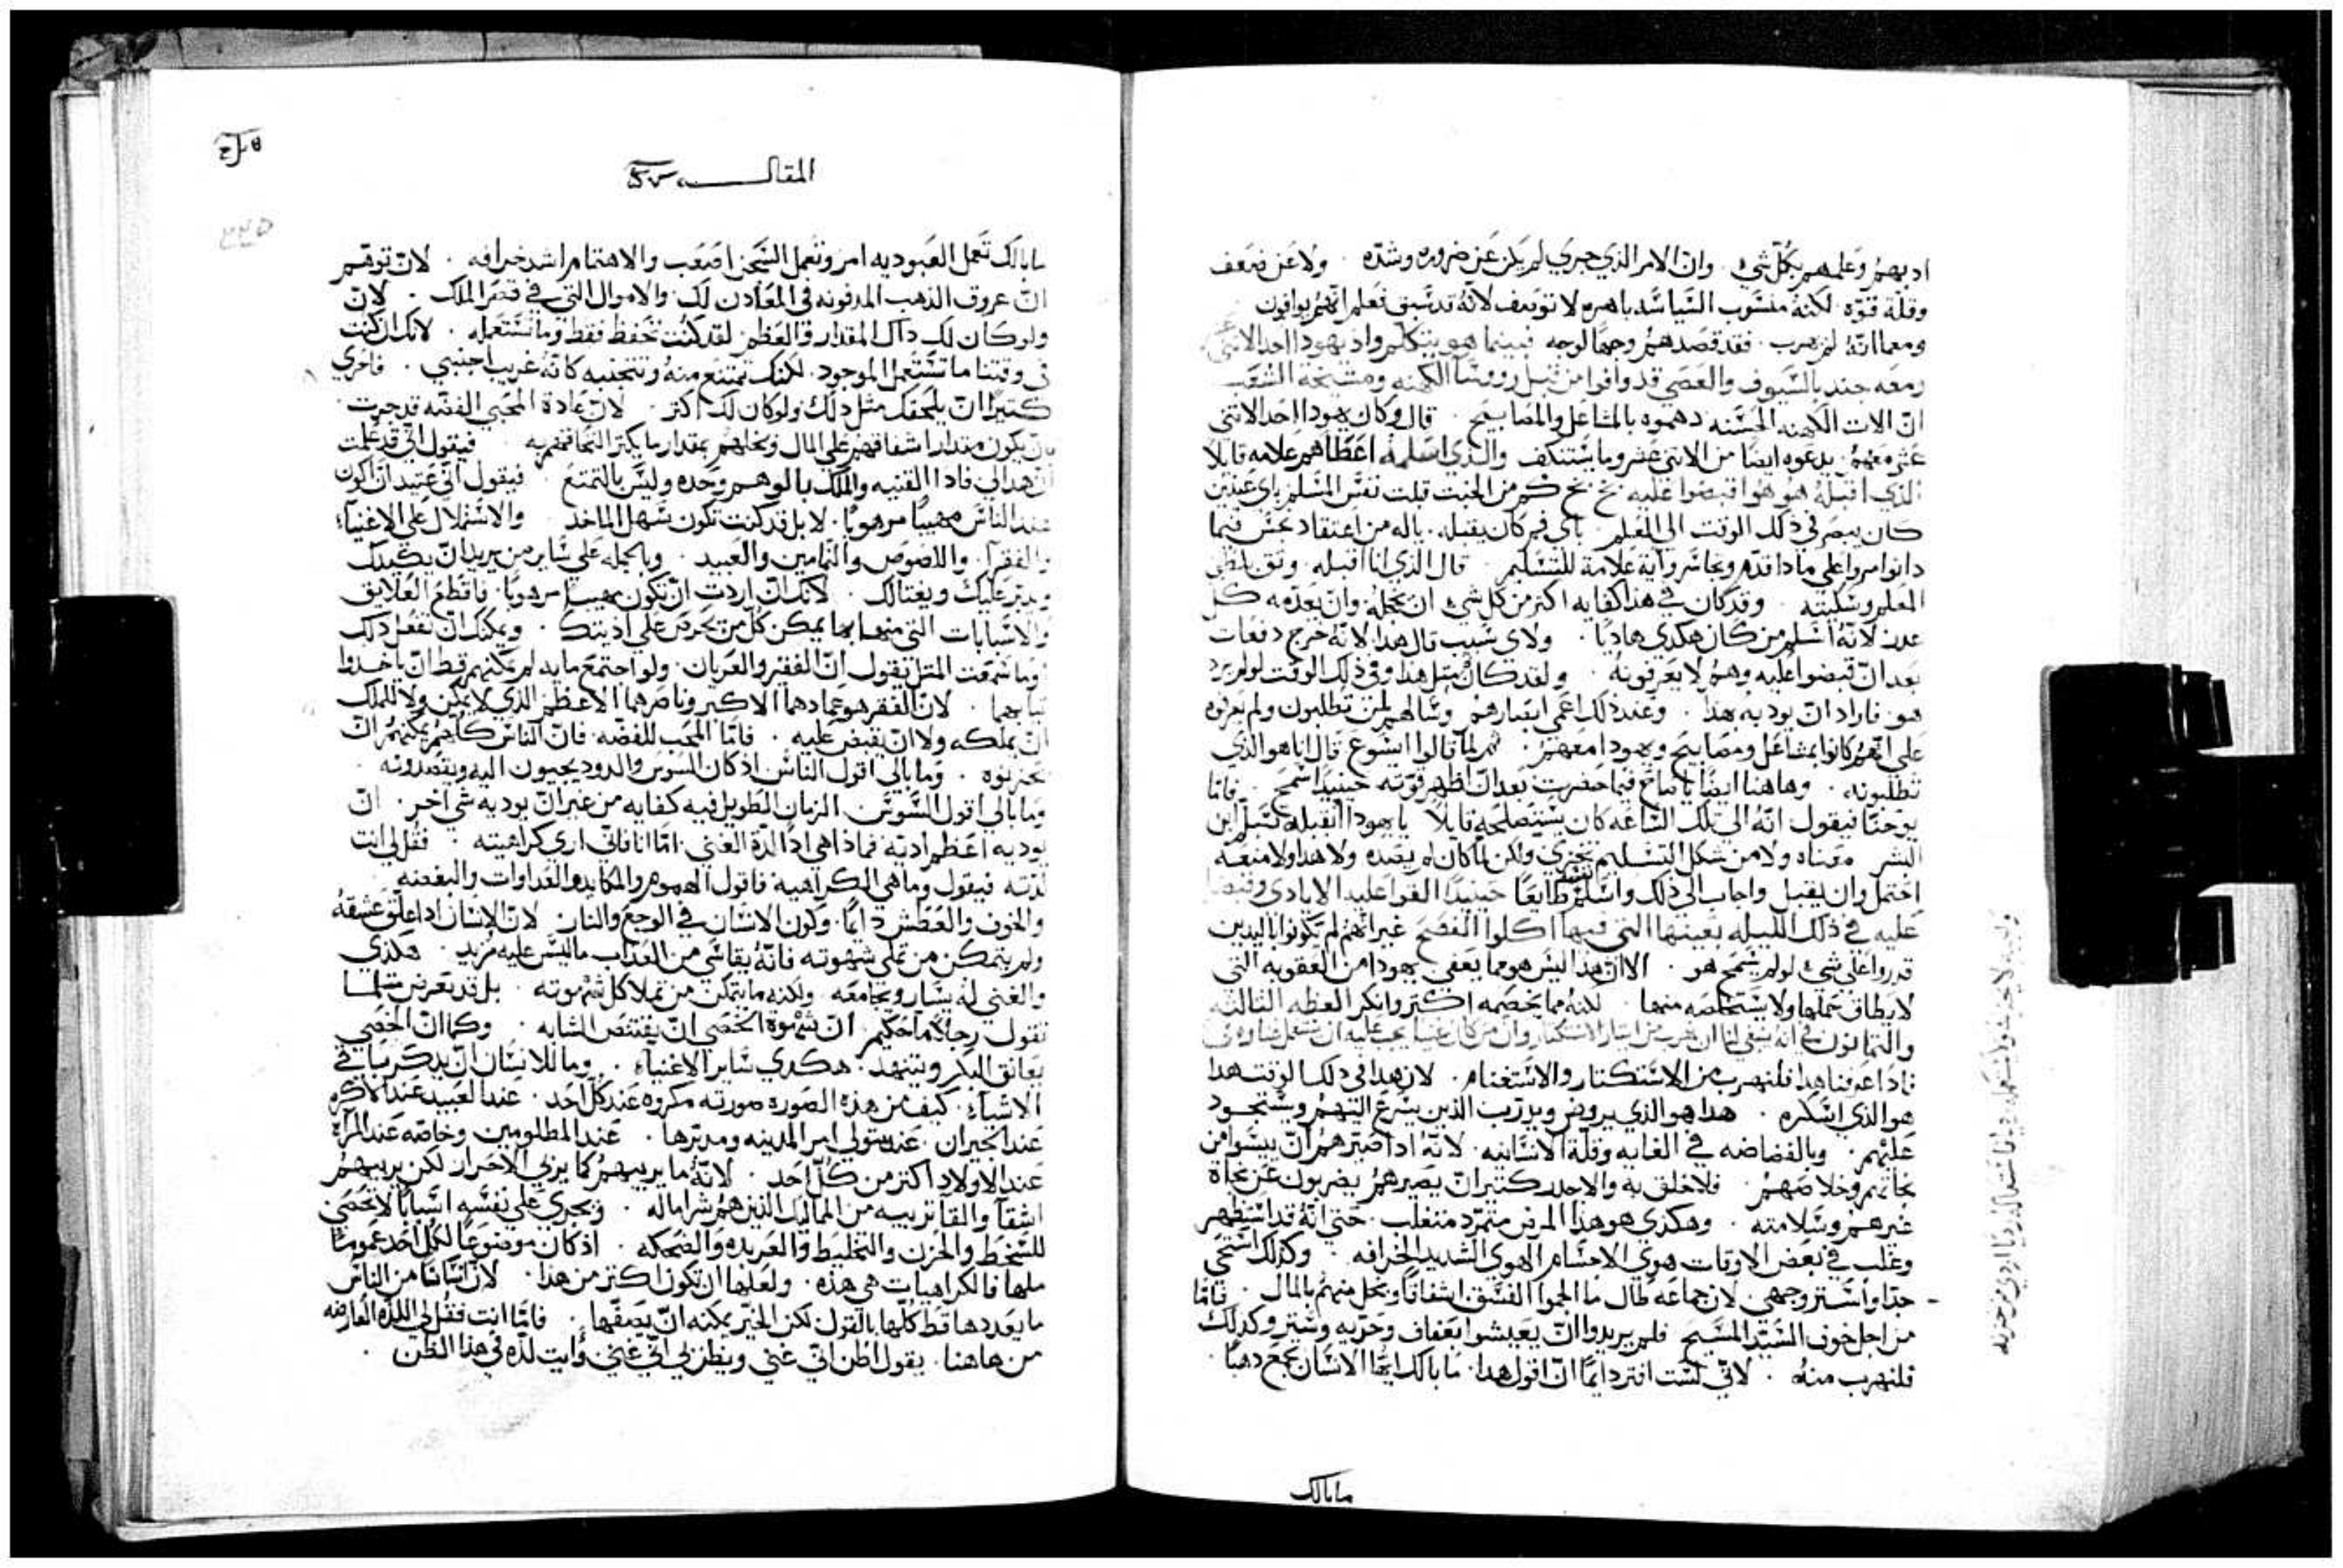 ادبهم وعلمهم بكل شي . وان الامر الذي جري لم يكن عن ضروره وشده . ولا عن ضعف
وقلة قوه . لكنه منسوب السياسه باهره لا توصف لانه قد سبق فعلم انهم يوافون
ومع انه لم يهرب . فقد قصدهم وجها لوجه فبينما هو يتكلم واذ يهودا احد الاثني
ومعه جند بالسيوف والعصي قد وافوا من قبل رووسا الكهنه ومشيخة الشعب
ان الات الكهنه الحسنه دهموه بالمشاعل والمصابيح . قال وكان يهودا احد الاثني
عشر معهم . يدعوه ايضا من الاثني عشر وما يستنكف والذي اسلمه اعطاهم علامه قايلا
الذي اقبله هو هو اقبضوا عليه بخ بخ كم من الخبث قبلت نفس المسلم باي عينين
كان يبصر في ذلك الوقت الي المعلم باي فم كان يقبله . باله من اعتقاد نجس فيما
دا توامروا علي ماذا قدم وتجاسر واية علامة للتسليم . قال الذي انا اقبله وثق بلطف
المعلم وسكينته . وقد كان في هذا كفايه اكثر من كل شي ان تخجله وان يعدمه كل
عدر لانه اسلم من كان هكذي هاديا . ولاي سبب قال هذا . لانه خرج دفعات
بعد ان قبضوا عليه وهم لا يعرفونه . ولقد كان مثل هذا وفي ذلك الوقت لو لم يرد
هو . فاراد ان يودبه هذا . وعند ذلك اعمي ابصارهم وسالهم لمن تطلبون ولم يعرفوه
علي انهم كانوا بمشاعل ومصابيح ويهودا معهم . ثم لما قالوا ايسوع قال انا هو الذي
تطلبونه . وهاهنا ايضا يا صاح فيما حضرت بعد ان اظهر قوته حينيد اسمح . فاما
يوحنا فيقول انه الي تلك الساعه كان يستصلحه قايلا يا يهودا ابقبله تسلم ابن
البشر معناه ولا من شكل التسليم تخزي ولكن لما كان لم يصده ولا هدا ولا منعه
احتمل وان يقبل واجاب الي ذلك واسلم نفسه طايعا حينيدا القوا عليه الايادي وقبضوا
عليه في ذلك الليله بعينها التي فيها اكلوا الفصح غير انهم لم يكونوا باليدين
قدروا علي شي لو لم يسمح هو . الا ان هذا ليس هو مما يعفي يهودا من العقوبه التي
لا يطاق حملها ولا يستخلصه منها . لكنه مما يخصمه اكثر وانكر العظه الثالثه
والثمانون في انه ينبغي لنا ان نهرب من ايثار الاستكثار وان من كان غنيا يجب عليه ان
فادا عرفنا هذا فلنهرب من الاستكثار والاستغنام . لان هدا في ذلك الوقت هدا
هو الذي اسكره . هدا هو الذي يروض ويدرب الذين يسرع التهم ويستحود
عليهم . وبالفضاضه في الغايه وقلة الانسانيه . لانه ادا صيرهم ان ييسوا من
نجاتهم وخلاصهم . فلاخلق به والاجدر كتيرا ان يصيرهم يضربون عن نجاة
غيرهم وسلامته . وهكذي هو هذا المرض متمرد متغلب . حتي انه قد استظهر
وغلب في بعض الاوقات هوي الاجسام الهوي الشديد الخرافه . وكذلك استحي
جدا واستر وجهي لان جماعه طال ما الجموا الفسق اشفاقا وبخل منهم بالمال . فاما
من اجل خوف السيد المسيح فلم يريدوا ان يعيشوا بعفاف وحريه وستر وكدلك
فلنهرب منه . لاني لست افتر دايما ان اقول هدا . ما بالك ايها الانسان تجمع دهبا .
مابالك
المقاله
مابالك تعمل العبوديه امر وتعمل السجن اصعب والاهتمام اشد خرافه . لان توهم
ان عروق الذهب المدفونه في المعادن لك . والاموال التي في قصر الملك . لان
ولو كان لك داك المقدار والعظم لقد كنت تحفظ فقط وما تستعمله . لانك ان كنت
في وقتنا ما تستعمل الموجود . لكنك تمتنع منه وتتجنبه كانه غريب اجنبي . فاحري
كتيرا ان يلحقك مثل ذلك ولو كان لك اكتر . لان عادة المحبي الفضه قد جرت
بان يكون مقدار اشفاقهم علي المال وبخلهم بمقدار ما يكثر التحافهم به فيقول اني قد علمت
ان هدا لي فادا القنيه والملك بالوهم وحده وليس بالتمتع . فيقول اني عتيد ان اكون
عند الناس مهيبا مرهوبا . لا بل قد كنت تكون سهل الماخد والاشتمال علي الاغنيا
والفقرا . واللصوص والنمامين والعبيد . وبالجمله علي ساير من يريد ان يكيدك
ويدبر عليك ويغتالك . لانك ان اردت ان تكون مهيبا مرهوبا . فاقطع العلايق
والاسبابات التي منها بها يمكن كل من يحرص علي اذيتك . ويمكنك ان تفعل ذلك
وما سمعت المثل يقول ان الفقير والعريان . ولو اجتمع مايه لم يمكنهم قط ان ياخذوا
ثيابهما . لان الفقر هو عمادهما الاكبر وناصرهما الاعظم الذي لا يمكن ولا للملك
ان يملكه ولا ان يقبض عليه . فاما المحب للفضه . فان الناس كلهم يمكنهم ان
يحزنوه . وما بالي اقول الناس اذ كان السوس والدود يجيون اليه ويقصدونه .
وما بالي اقول السوس . الزمان الطويل فيه كفايه من غير ان يوديه شي اخر . ان
يوديه اعظم ادية فما ذا هي ادا لدة الغني . اما انا فاني اري كراهيته . فقل لي انت
لدته فيقول وما هي الكراهيه فاقول الهموم والمكايد والعداوات والبغضه
والخوف والعطش دايما . وكون الانسان في الوجع والنار لان الانسان ادا علق عشقه
ولم يتمكن من تملي شهوته فانه يقاسي من العذاب ما ليس عليه مزيد . هكذي
والغني له يسار ويجامعه . ولكنه ما يتمكن من تملا كل شهوته . بل قد يعرض مثلما
يقول رجلا ما حكيم ان شهوة الخصي ان يفتض الشابه . وكما ان الخصي
يعانق البكر ويتنهد . هكدي ساير الاغنيا . وما للانسان ان يدكر باقي
الاشيا . كيف من هذه الصوره صورته مكروه عند كل احد . عند العبيد عند الاكره
عند الجيران . عند متولي امر المدينه ومدبرها . عند المطلومين وخاصه عند المراه
عند الاولاد اكتر من كل احد . لانه ما يربيهم كما يربي الاحرار لكن يربيهم
اشقا والقا تربيه من المماليك الذين هم شرا ماله . ويجري علي نفسه اسبابا لا تحصي
للسخط والحزن والتخليط والعربده والضحكه . اذ كان موضوعا لكل احد عموما
ملها فالكراهيات هي هذه . ولعلها ان تكون اكتر من هدا . لان انسانا من الناس
ما يعددها قط كلها بالقول لكن الخبر يمكنه ان يصفها . فاما انت فقل لي اللده العارضه
من هاهنا . يقول اظن اني غني ويظن بي اني غني وايت لده في هذا الظن .